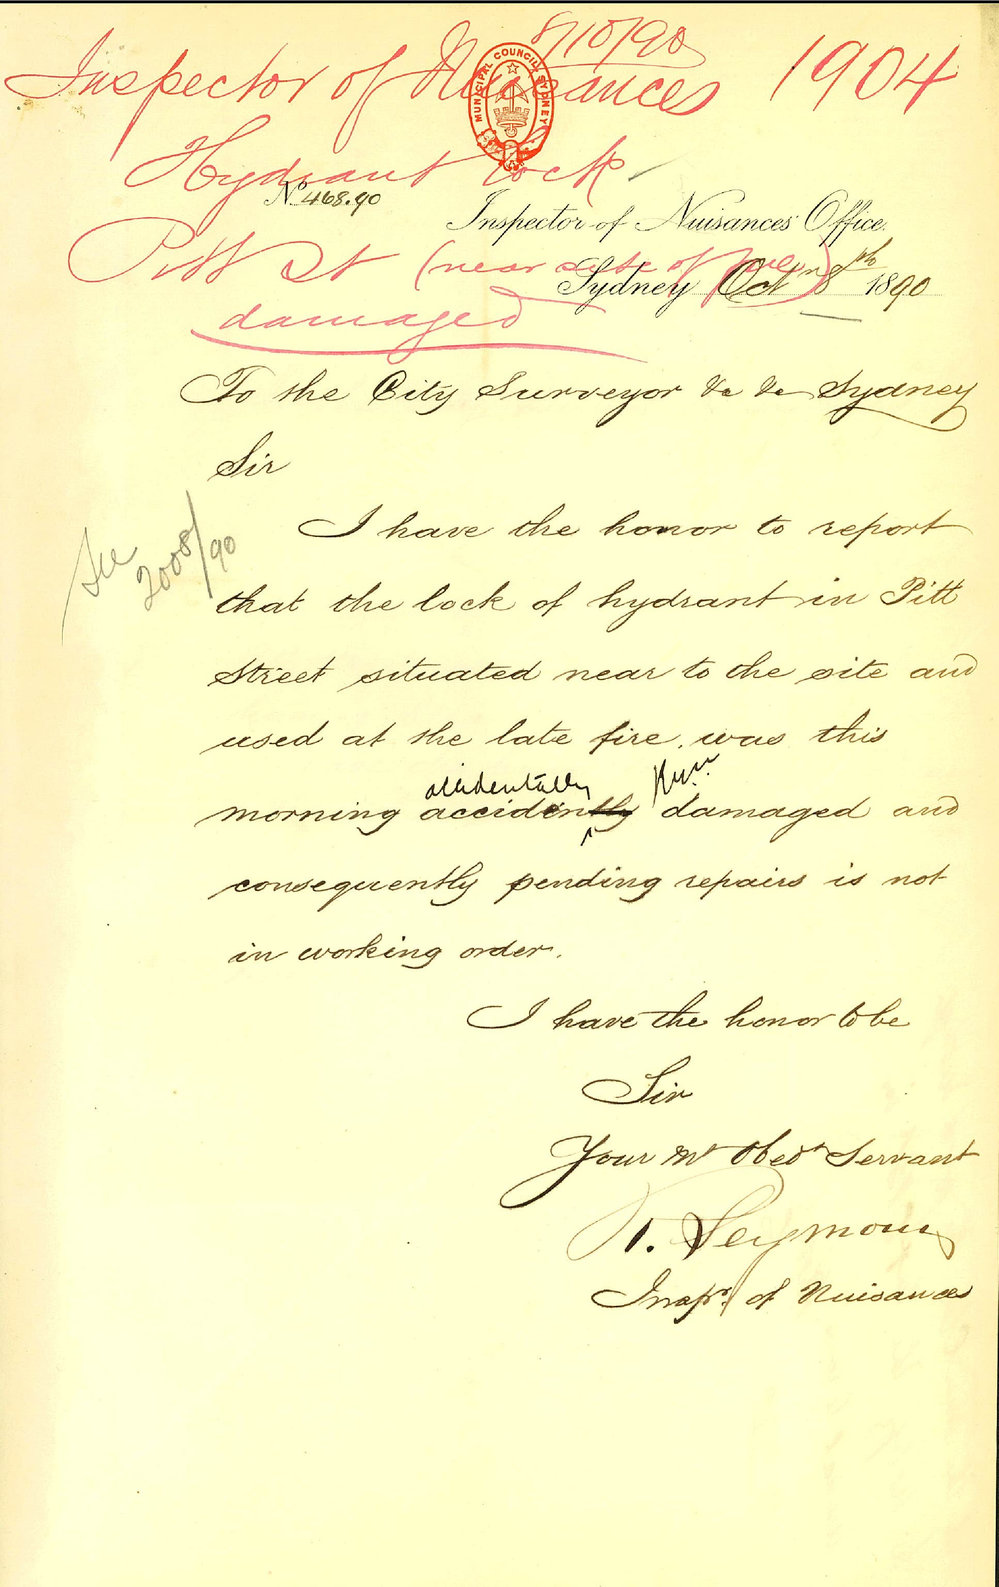 8/10/90
Inspector of Nuisances 1904
MUNICIPAL COUNCIL SYDNEY
Hydrant lock
No 468.90
Inspector of Nuisances' Office.
Pitt St (near site of fire)
Sydney Oct 8th 1890
damaged
To the City Surveyor &c &c Sydney
Sir
See
2008/90
I have the honor to report
that the lock of hydrant in Pitt
Street situated near to the site and
used at the late fire, was this
accidentally
morning accidently damaged and
consequently pending repairs is not
in working order.
I have the honor to be
Sir
Your Mt Obedt Servant
R. Seymour
Inspr. of Nuisances